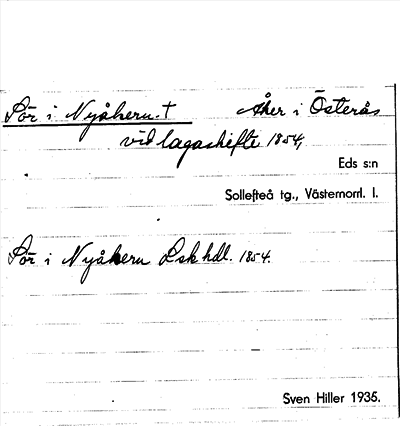 Sör i Nyåkern. † Åker i Österås
vid lagaskifte 1854,
Eds s:n
Sollefteå tg., Västernorrl. l.
Sör i Nyåkern Lsk hdl. 1854.
Sven Hiller 1935.